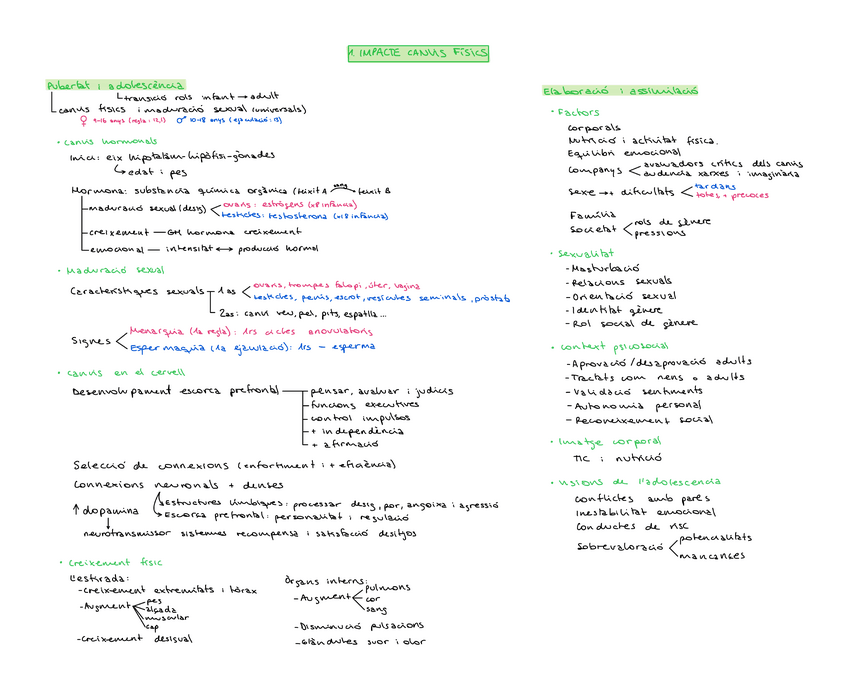 1. IMPACTE CANVIS FÍSICS
Pubertat i adolescència
transició rols infant → adult
canvis físics i maduració sexual (universals)
♀ 9-16 anys (regla: 12,1) ♂ 10-18 anys (ejaculació: 13)
• Canvis hormonals
Inici: eix hipotalàm-hipòfisi-gònades
edat i pes
Hormona: substància química orgànica (teixit A → teixit B
maduració sexual (desig)
ovaris: estrògens (x8 infància)
testicles: testosterona (x18 infància)
creixement — GH hormona creixement
emocional — intensitat ↔ producció hormol
• Maduració sexual
Característiques sexuals
1es
ovaris, trompes falopi, úter, vagina
testicles, penis, escrot, vesícules seminals, pròstata
2es: canvi veu, pel, pits, espatlla...
Signes
Menarquia (1a regla): 1rs cicles anovulatoris
Espermaquia (1a ejaculació): 1rs — esperma
• Canvis en el cervell
Desenvolupament escorça prefrontal
pensar, avaluar i judicis
funcions executives
control impulsos
+ independència
+ afirmació
Selecció de connexions (enfortiment i + eficiència)
Connexions neuronals + denses
Estructures límbiques: processar desig, por, angoixa i agressió
Escorça prefrontal: personalitat i regulació
↑ dopamina
neurotransmissor sistemes recompensa i satisfacció desitjos
• Creixement físic
L'estirada:
- Creixement extremitats i tòrax
- Augment
pes
alçada
muscular
cap
- Creixement desigual
Òrgans interns:
- Augment
pulmons
cor
sang
- Disminució pulsacions
- Glàndules suor i olor
Elaboració i assimilació
• Factors
Corporals
Nutrició i activitat física.
Equilibri emocional
Companys
avaluadors crítics dels canvis
audiència xarxes i imaginària
Sexe → + dificultats
tardans
totes + precoces
Família
Societat
rols de gènere
pressions
• Sexualitat
- Masturbació
- Relacions sexuals
- Orientació sexual
- Identitat gènere
- Rol social de gènere
• Context psicosocial
- Aprovació / desaprovació adults
- Tractats com nens o adults
- Validació sentiments
- Autonomia personal
- Reconeixement social
• Imatge corporal
TIC i nutrició
• Visions de l'adolescencia
Conflictes amb pares
Inestabilitat emocional
Conductes de risc
Sobrevaloració
potencialitats
mancances